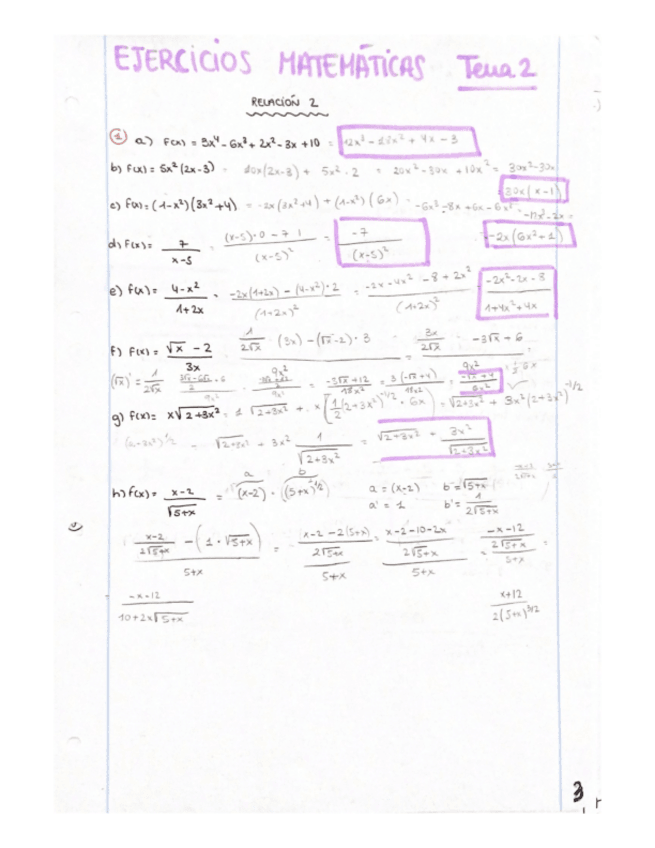 EJERCICIOS MATEMÁTICAS Tema 2
RELACIÓN 2
1 a) f(x) = 3x⁴ - 6x³ + 2x² - 3x + 10 = 12x³ - 18x² + 4x - 3
b) f(x) = 5x² (2x-3) = 10x(2x-3) + 5x² · 2 = 20x² - 30x + 10x² = 30x² - 30x
= 30x(x-1)
c) f(x) = (1-x²)(3x²+4) = -2x(3x²+4) + (1-x²)(6x) = -6x³ - 8x + 6x - 6x³
-2x(6x²+1)
d) f(x) = 7/(x-5) = ((x-5)·0 - 7·1)/(x-5)² = -7/(x-5)²
e) f(x) = (4-x²)/(1+2x) = (-2x(1+2x) - (4-x²)·2)/(1+2x)² = (-2x-4x²-8+2x²)/(1+2x)² = (-2x²-2x-8)/(1+4x²+4x)
f) f(x) = (√x - 2)/3x (1/2√x · (3x) - (√x-2)·3)/9x² = (3x/2√x - 3√x + 6)/9x²
(√x)' = 1/2√x = (-3√x+12)/18x² = 3(-√x+4)/18x² =
g) f(x) = x√2+3x² = 1 √2+3x² + x [1/2 (2+3x²)^-1/2 · 6x] = √2+3x² + 3x²(2+3x²)^-1/2
√2+3x² + 3x² 1/√2+3x² = √2+3x² + 3x²/√2+3x²
h) f(x) = (x-2)/√5+x = a (x-2) · b (5+x)^-1/2 a = (x-2) b = √5+x
a' = 1 b' = 1/2√5+x
((x-2)/2√5+x - (1·√5+x))/5+x = ((x-2-2(5+x))/2√5+x)/5+x = ((x-2-10-2x)/2√5+x)/5+x = ((-x-12)/2√5+x)/5+x =
(-x-12)/(10+2x√5+x) (x+12)/2(5+x)^3/2
3